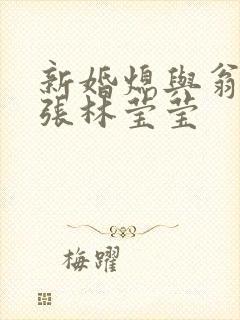 新婚熄與翁
張林莹莹
梅躍